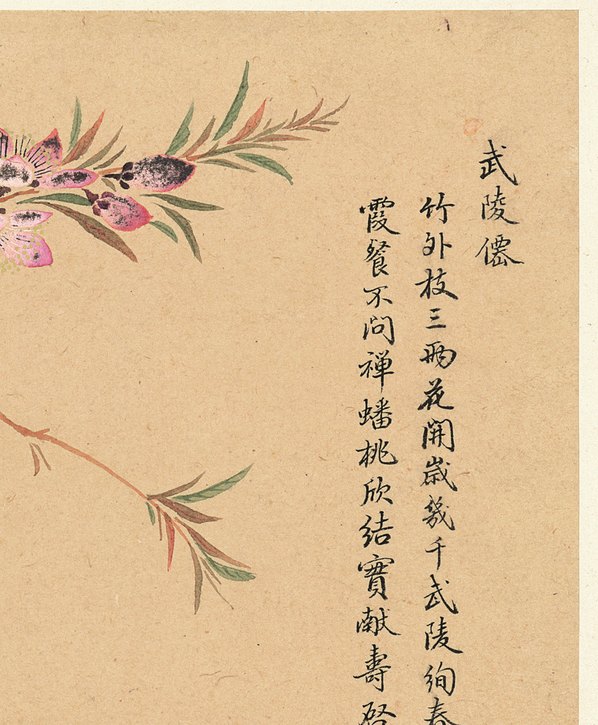 武陵僊
竹外枝三兩花開歲幾千武陵絢春
霞餐不問禪蟠桃欣結實献壽啓